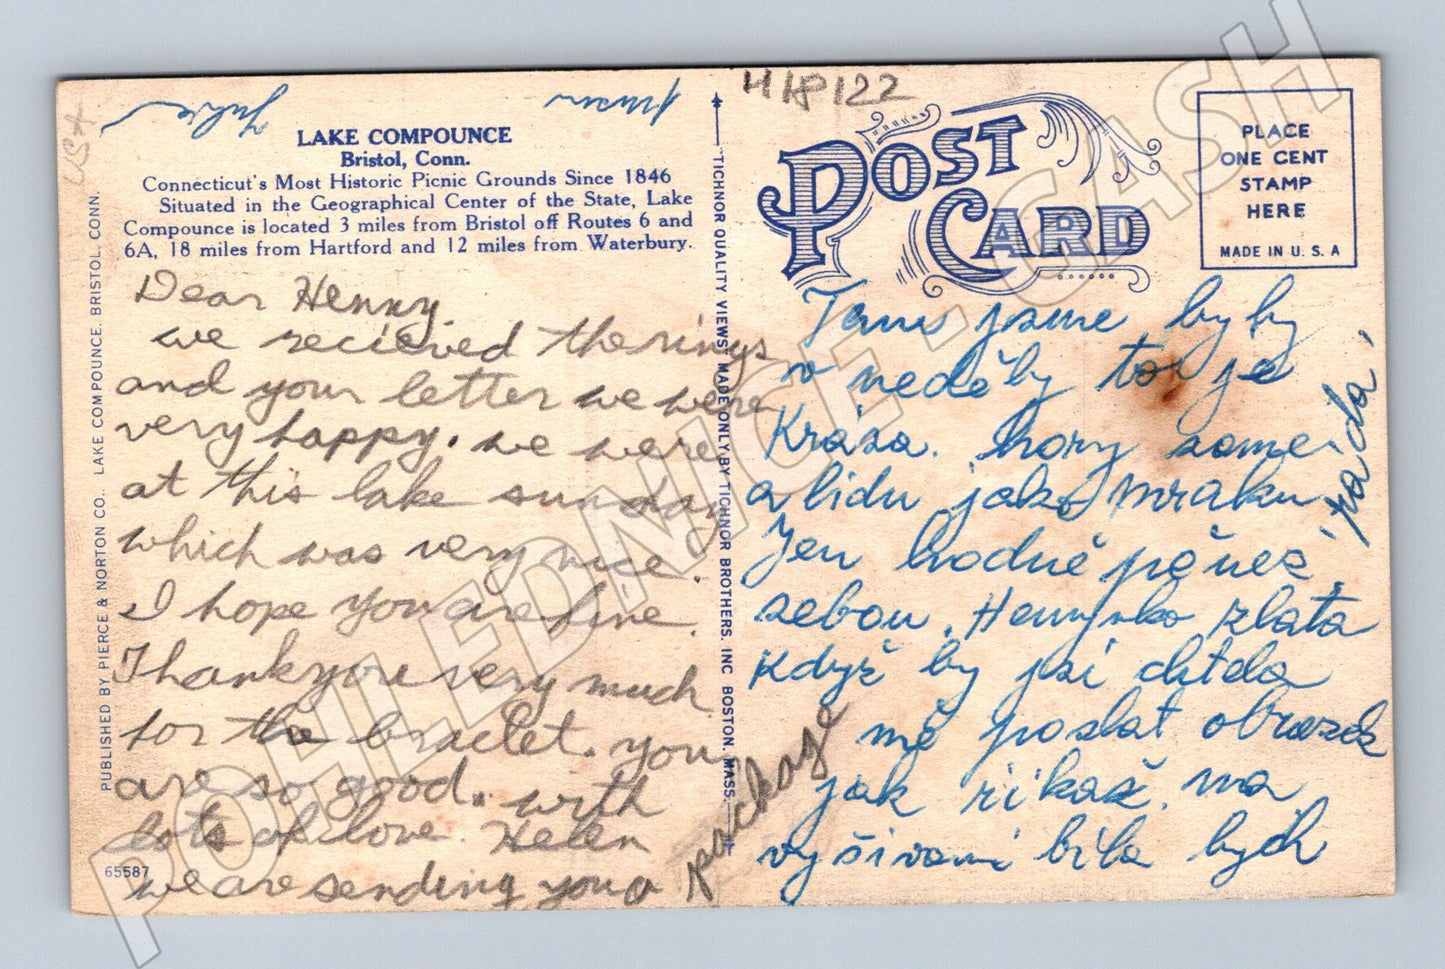 H18122
USA
Julie
LAKE COMPOUNCE
Bristol, Conn.
Connecticut's Most Historic Picnic Grounds Since 1846
Situated in the Geographical Center of the State, Lake
Compounce is located 3 miles from Bristol off Routes 6 and
6A, 18 miles from Hartford and 12 miles from Waterbury.
Dear Henny
we recieved the rings
and your letter we were
very happy. we were
at this lake sunday
which was very nice.
I hope you are fine.
Thank you very much
for the braclet. you
are so good. with
lots of love Helen
we are sending you a
package
65587
PUBLISHED BY PIERCE & NORTON CO., LAKE COMPOUNCE, BRISTOL, CONN.
"TICHNOR QUALITY VIEWS" MADE ONLY BY TICHNOR BROTHERS, INC BOSTON, MASS.
POST CARD
PLACE
ONE CENT
STAMP
HERE
MADE IN U. S. A
jsme byly
v neděly to je
Krása. hory same
a lidu jako mraku
Jen hodně peněz
sebou. Hennynko zlata
Když by jsi chtela
mě poslat obrazek
jak řikaš. na
vyšivani bila bych
rada,
POHLEDNICE - CASH